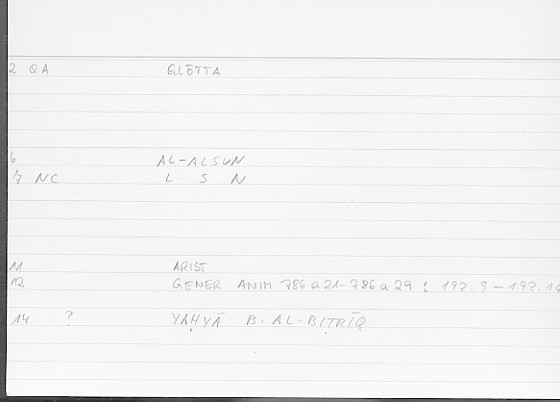 2 QA GLŌTTA
6 AL-ALSUN
7 NC L S N
11 ARIST
12 GENER ANIM 786 a 21-786 a 29 : 192.9-192.16
14 ? YAḤYĀ B. AL-BIṬRĪQ